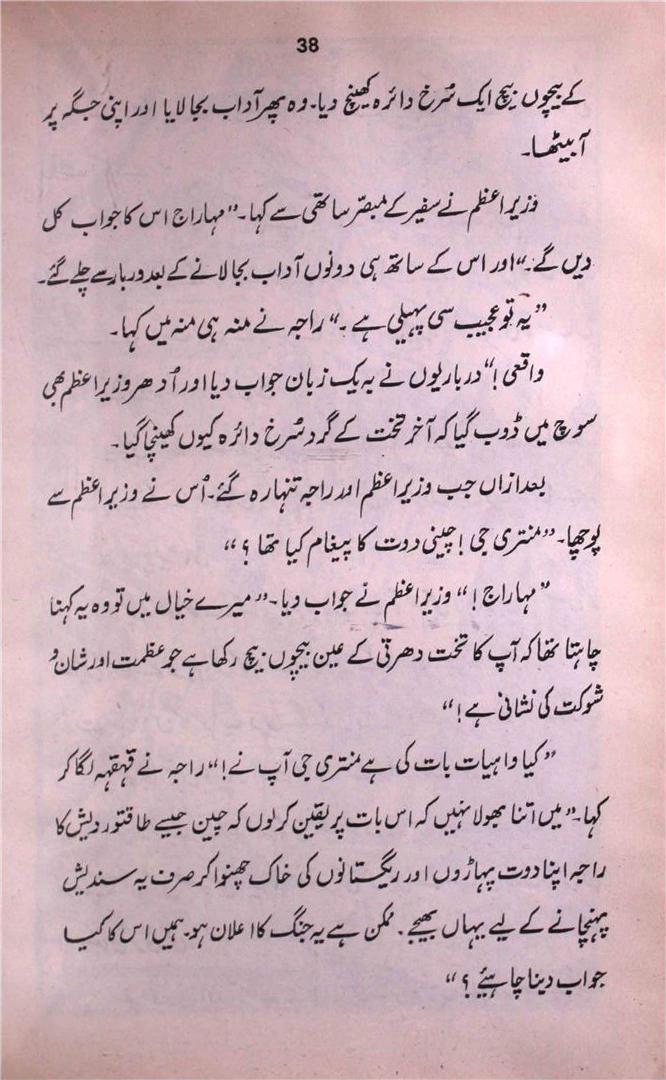 38
کے بیچوں بیچ ایک سُرخ دائرہ کھینچ دیا۔ وہ پھر آداب بجا لایا اور اپنی جگہ پر
آ بیٹھا۔
وزیر اعظم نے سفیر کے مبصّر ساتھی سے کہا۔ ”مہاراج اس کا جواب کل
دیں گے۔“ اور اس کے ساتھ ہی دونوں آداب بجا لانے کے بعد دربار سے چلے گئے۔
”یہ تو عجیب سی پہیلی ہے۔“ راجہ نے منہ ہی منہ میں کہا۔
واقعی!“ درباریوں نے بہ یک زبان جواب دیا اور اُدھر وزیر اعظم بھی
سوچ میں ڈوب گیا کہ آخر تخت کے گرد سُرخ دائرہ کیوں کھینچا گیا۔
بعد ازاں جب وزیر اعظم اور راجہ تنہا رہ گئے۔ اُس نے وزیر اعظم سے
پوچھا۔ ”منتری جی! چینی دوت کا پیغام کیا تھا؟“
”مہاراج!“ وزیر اعظم نے جواب دیا۔ ”میرے خیال میں تو وہ یہ کہنا
چاہتا تھا کہ آپ کا تخت دھرتی کے عین بیچوں بیچ رکھا ہے جو عظمت اور شان و
شوکت کی نشانی ہے!“
”کیا واہیات بات کی ہے منتری جی آپ نے!“ راجہ نے قہقہہ لگا کر
کہا۔ ”میں اتنا بھولا نہیں کہ اس بات پر یقین کر لوں کہ چین جیسے طاقتور دیش کا
راجہ اپنا دوت پہاڑوں اور ریگستانوں کی خاک چھنوا کر صرف یہ سندیش
پہنچانے کے لیے یہاں بھیجے۔ ممکن ہے یہ جنگ کا اعلان ہو۔ ہمیں اس کا کیا
جواب دینا چاہیئے؟“